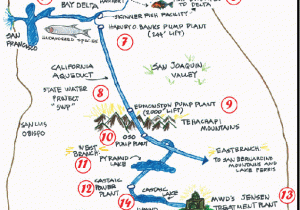 BAY DELTA
TO DELTA
SKINNER FISH FACILITY
SAN
FRANCISCO
ENDANGERED SPECIES
HARVEY O. BANKS PUMP PLANT
(244' LIFT)
7
CALIFORNIA
AQUEDUCT
SAN JOAQUIN
VALLEY
STATE WATER
PROJECT
"SWP"
8
EDMONSTON PUMP PLANT
(2,000' LIFT)
9
TEHACHAPI
MOUNTAINS
SAN LUIS
OBISPO
10
OSO
PUMP PLANT
WEST
BRANCH
11
PYRAMID
LAKE
EAST BRANCH
TO SAN BERNARDINO
MOUNTAINS AND
LAKE PERRIS
12
CASTAIC
POWER
PLANT
CASTAIC
LAKE
13
14
MWD'S JENSEN
TREATMENT PLANT